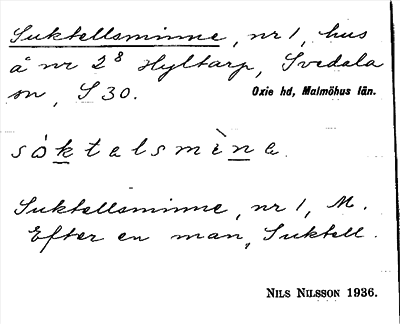 Suktellsminne, nr 1, hus
å nr 2⁸ Hyltarp, Svedala
sn, S 30. Oxie hd, Malmöhus län.
sȯktalsmìna.
Suktellsminne, nr 1, M.
Efter en man, Suktell.
NILS NILSSON 1936.